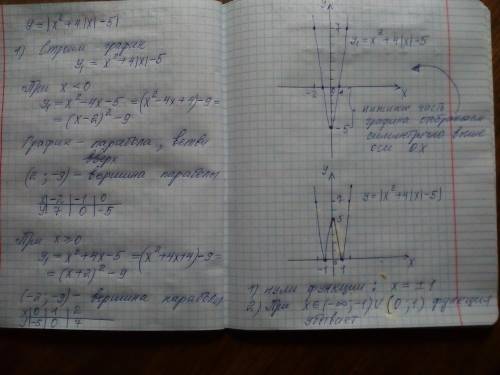 y=|x²+4|x|-5|
1) Строим график
y₁=x²+4|x|-5
При x<0
y₁=x²-4x-5=(x²-4x+4)-9=
=(x-2)²-9
График - парабола, ветви
вверх
(2;-9) - вершина параболы
x -2 -1 0
y 7 0 -5
При x≥0
y₁=x²+4x-5=(x²+4x+4)-9=
=(x+2)²-9
(-2;-9) - вершина параболы
x 0 1 2
y -5 0 7
y
7
y₁=x²+4|x|-5
-2 0 1 x
-5
нижнюю часть
графика отображаем
симметрично выше
оси OX
y
y=|x²+4|x|-5|
5
-1 1 x
1) нули функции: x=±1
2) При x∈(-∞;-1)∪(0;1) функция
убывает